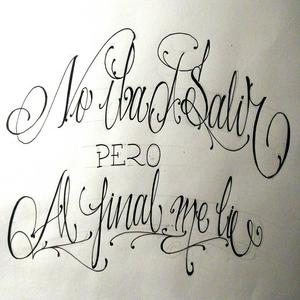 No iba A Salir
PERO
Al final me lie